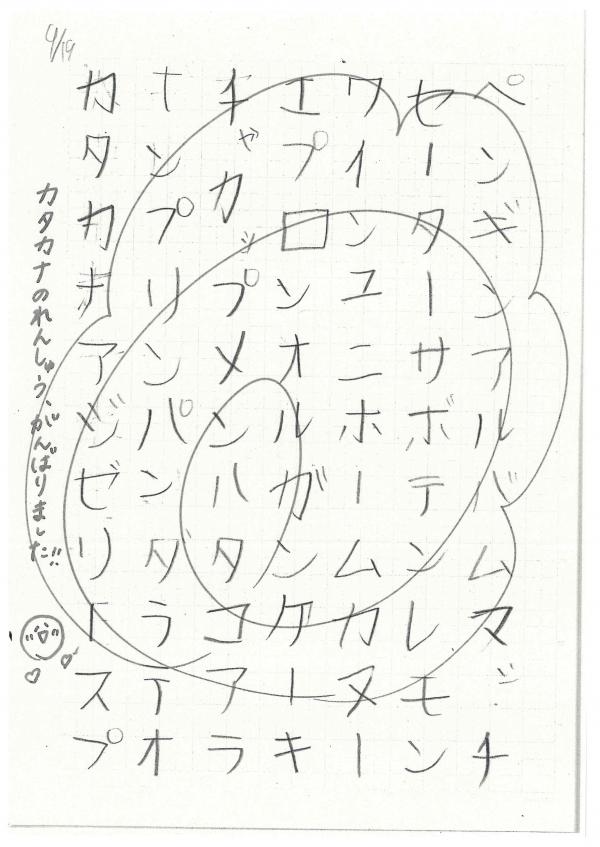 4/19
ペンギンアルバムマッチ
セーターサボテンレモン
ウインユニホームカヌー
エプロンオルガンケーキ
チャガップメンハタコアラ
ナンプリンパンタライオ
カタカナアジゼリトスプ
カタカナのれんしゅう、がんばりました!!